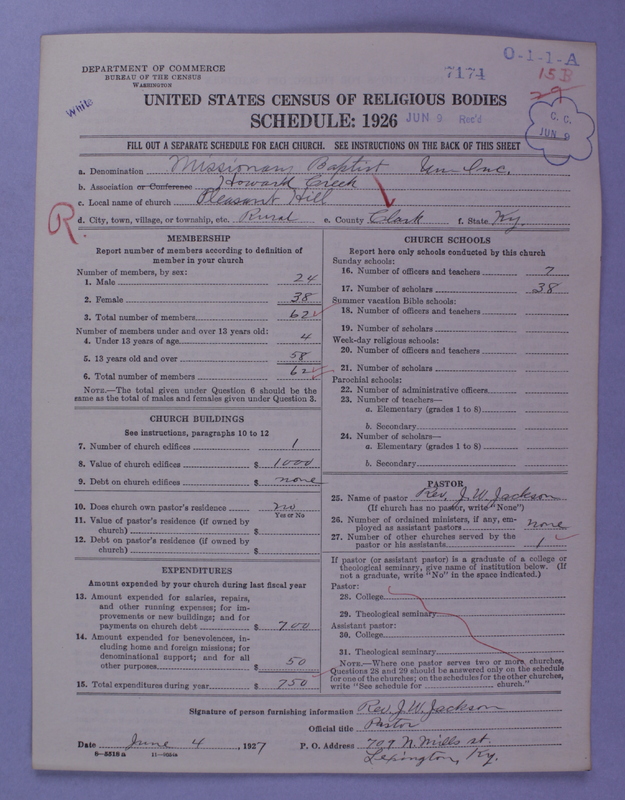 DEPARTMENT OF COMMERCE
BUREAU OF THE CENSUS
WASHINGTON
White
7174
O-1-1-A
15B
29
UNITED STATES CENSUS OF RELIGIOUS BODIES
SCHEDULE: 1926
JUN 9 Rec'd
C. C.
JUN 9
FILL OUT A SEPARATE SCHEDULE FOR EACH CHURCH. SEE INSTRUCTIONS ON THE BACK OF THIS SHEET
a. Denomination Missionary Baptist Un-Inc.
b. Association or Conference Howark Creek
c. Local name of church Pleasant Hill
d. City, town, village, or township, etc. Rural e. County Clark f. State Ky.
R.
MEMBERSHIP
Report number of members according to definition of
member in your church
Number of members, by sex:
1. Male 24
2. Female 38
3. Total number of members 62
Number of members under and over 13 years old:
4. Under 13 years of age 4
5. 13 years old and over 58
6. Total number of members 62
NOTE.—The total given under Question 6 should be the
same as the total of males and females given under Question 3.
CHURCH BUILDINGS
See instructions, paragraphs 10 to 12
7. Number of church edifices 1
8. Value of church edifices $ 1000
9. Debt on church edifices $ none
10. Does church own pastor's residence no
Yes or No
11. Value of pastor's residence (if owned by
church) $
12. Debt on pastor's residence (if owned by
church) $
EXPENDITURES
Amount expended by your church during last fiscal year
13. Amount expended for salaries, repairs,
and other running expenses; for im-
provements or new buildings; and for
payments on church debt $ 700
14. Amount expended for benevolences, in-
cluding home and foreign missions; for
denominational support; and for all
other purposes $ 50
15. Total expenditures during year $ 750
CHURCH SCHOOLS
Report here only schools conducted by this church
Sunday schools:
16. Number of officers and teachers 7
17. Number of scholars 38
Summer vacation Bible schools:
18. Number of officers and teachers
19. Number of scholars
Week-day religious schools:
20. Number of officers and teachers
21. Number of scholars
Parochial schools:
22. Number of administrative officers
23. Number of teachers—
a. Elementary (grades 1 to 8)
b. Secondary
24. Number of scholars—
a. Elementary (grades 1 to 8)
b. Secondary
PASTOR
25. Name of pastor Rev. J. W. Jackson
(If church has no pastor, write "None")
26. Number of ordained ministers, if any, em-
ployed as assistant pastors none
27. Number of other churches served by the
pastor or his assistants 1
If pastor (or assistant pastor) is a graduate of a college or
theological seminary, give name of institution below. (If
not a graduate, write "No" in the space indicated.)
Pastor:
28. College
29. Theological seminary
Assistant pastor:
30. College
31. Theological seminary
NOTE.—Where one pastor serves two or more churches,
Questions 28 and 29 should be answered only on the schedule
for one of the churches; on the schedules for the other churches,
write "See schedule for church."
Signature of person furnishing information Rev. J. W. Jackson
Official title Pastor
Date June 4, 1927 P. O. Address 709 N. Mills st.
Lexington, Ky.
8—5518 a